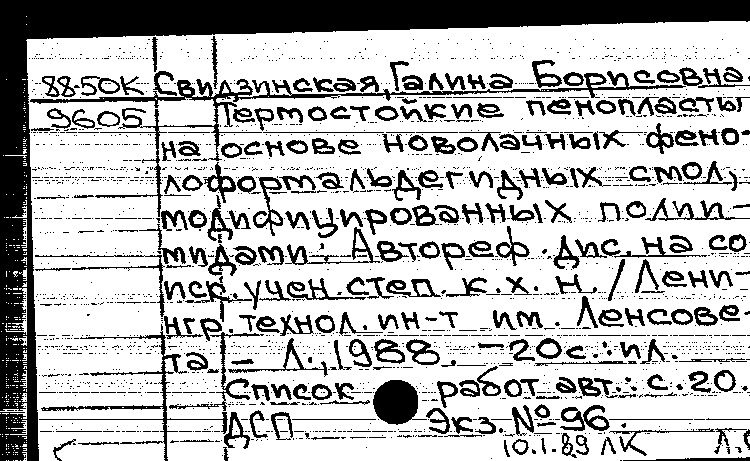 88-50К Свидзинская, Галина Борисовна.
9605 Термостойкие пенопласты
на основе новолачных фено-
лоформальдегидных смол,
модифицированных полии-
мидами: Автореф. дис. на со
иск. учен. степ. к. х. н. / Лени-
нгр. технол. ин-т им. Ленсове-
та - Л., 1988. - 20с.: ил.
Список работ авт.: с. 20.
ДСП. Экз. № 96.
10.1.89 ЛК